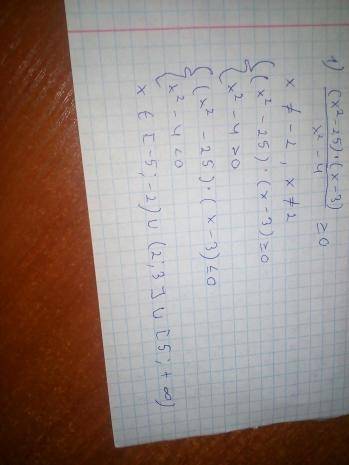 1) (x² - 25) · (x - 3) / x² - 4 ≥ 0
x ≠ -2 ; x ≠ 2
{ (x² - 25) · (x - 3) ≥ 0
x² - 4 ≥ 0
{ (x² - 25) · (x - 3) ≤ 0
x² - 4 ≤ 0
x ∈ [-5; -2) ∪ (2; 3] ∪ [5; +∞)